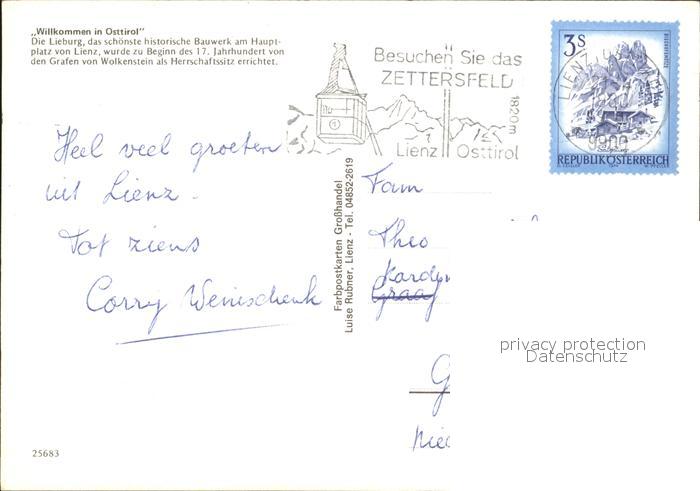 „Willkommen in Osttirol"
Die Lieburg, das schönste historische Bauwerk am Haupt-
platz von Lienz, wurde zu Beginn des 17. Jahrhundert von
den Grafen von Wolkenstein als Herrschaftssitz errichtet.
Besuchen Sie das
ZETTERSFELD
1820 m
Lienz Osttirol
3 S
LIENZ
9900
REPUBLIK ÖSTERREICH
Heel veel groeten
uit Lienz.
Tot ziens
Corry Weinschenk
Farbpostkarten Großhandel
Luise Rubner, Lienz - Tel. 04852-2619
Fam
Theo
Graag
G
privacy protection
Datenschutz
25683